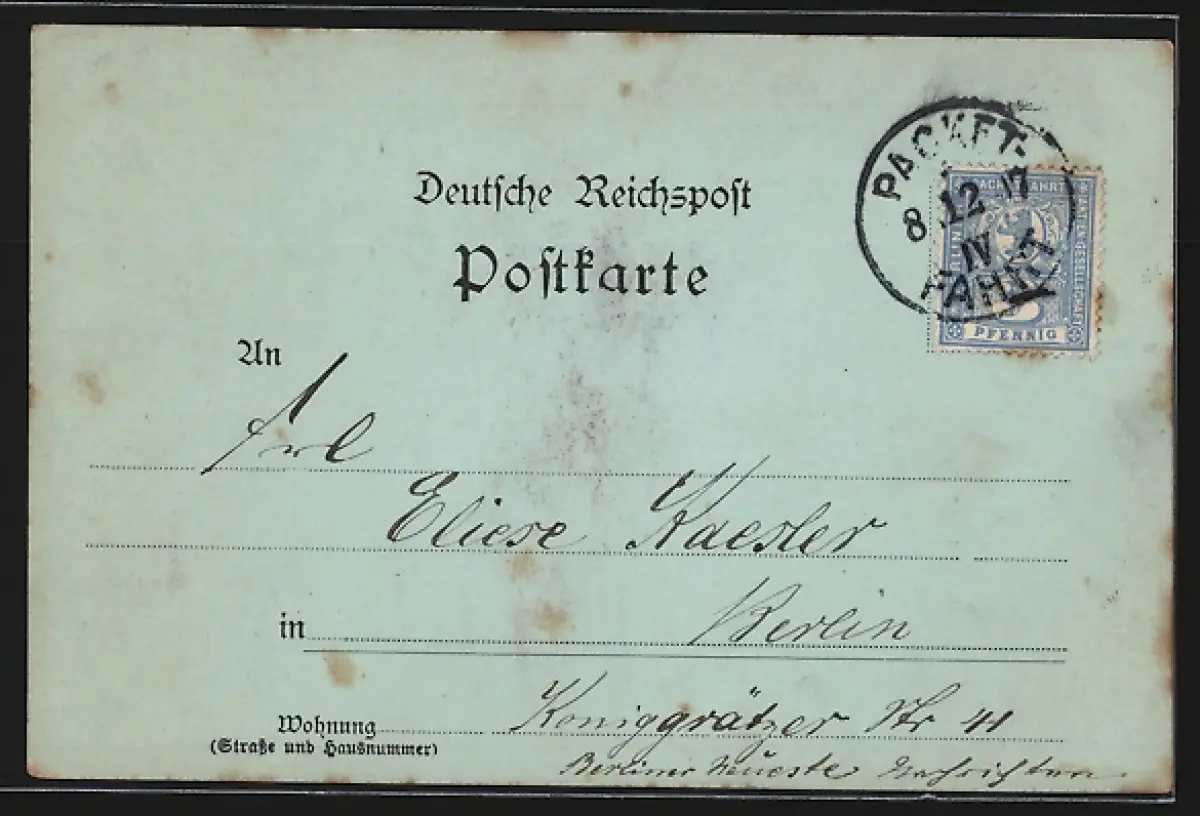 Deutsche Reichspost
Postkarte
PACKET-
8.12 97
IV
FAHRT
PFENNIG
An
Frl
Eliese Kaesler
in Berlin
Wohnung Königgrätzer Str 41
(Straße und Hausnummer)
Berliner Neueste Nachrichten